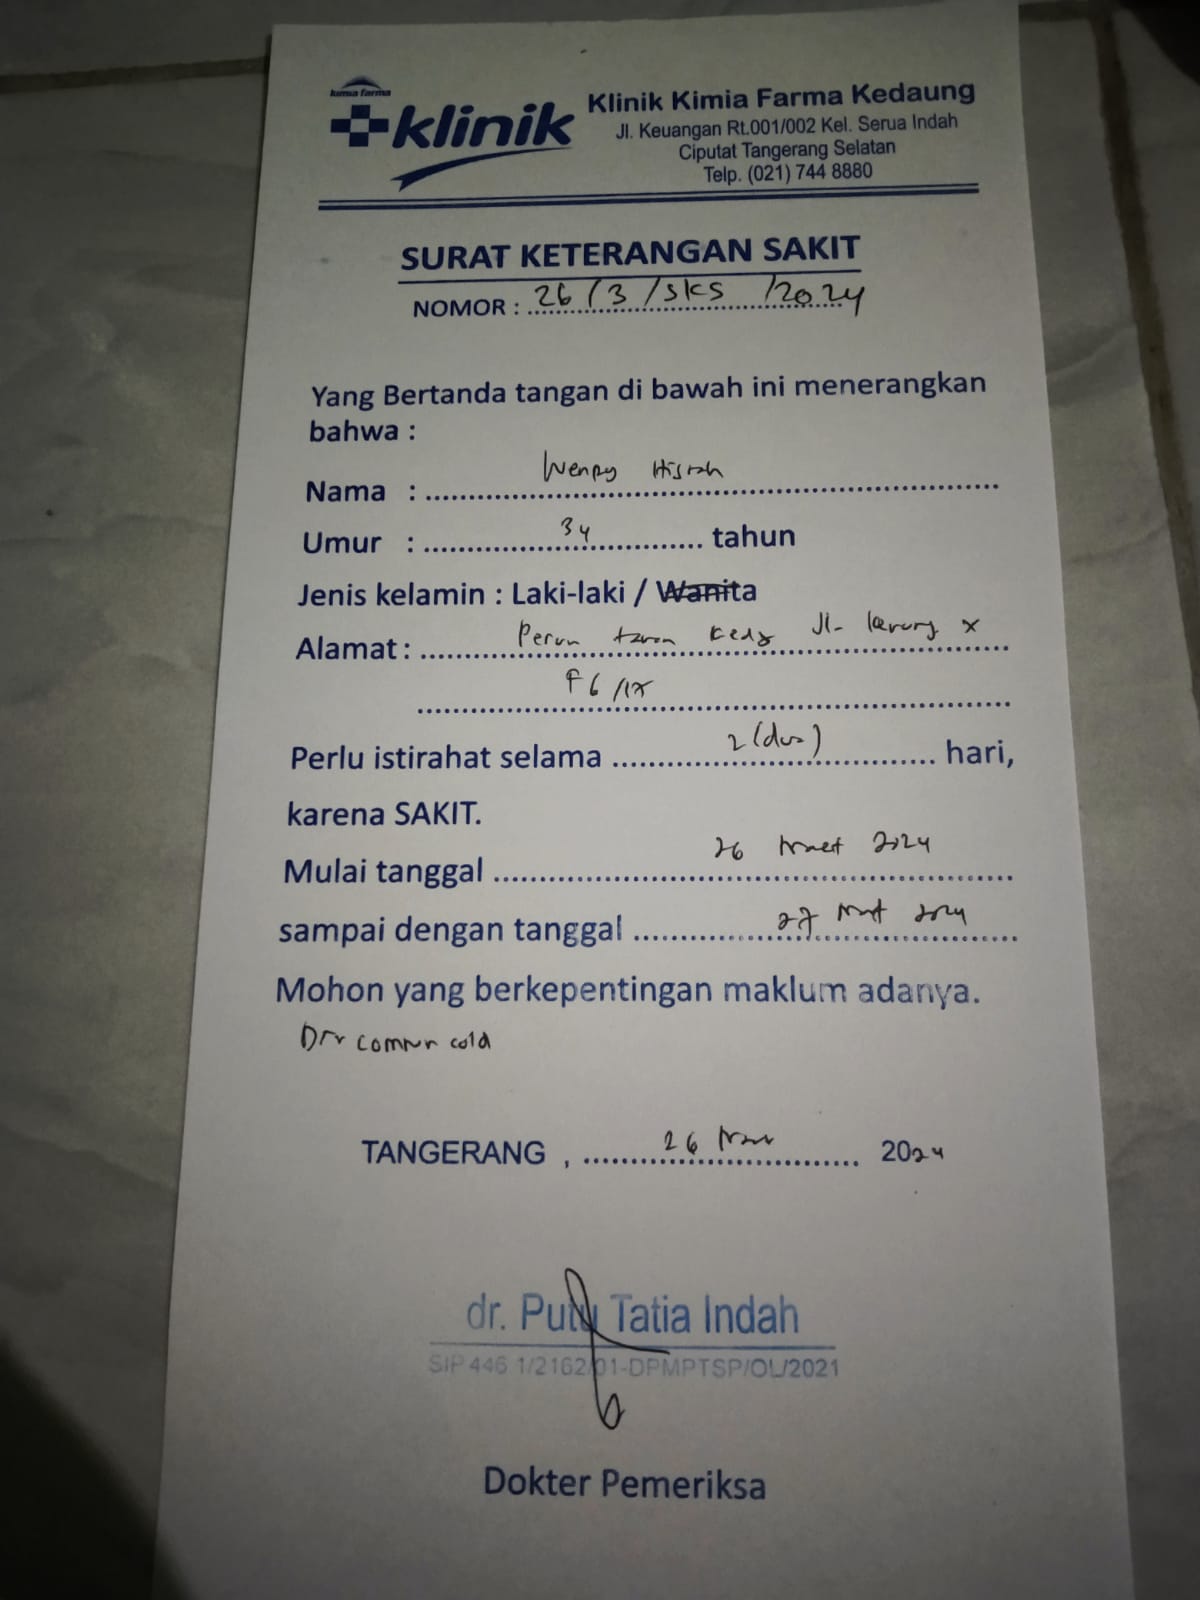 kimia farma
klinik
Klinik Kimia Farma Kedaung
Jl. Keuangan Rt.001/002 Kel. Serua Indah
Ciputat Tangerang Selatan
Telp. (021) 744 8880
SURAT KETERANGAN SAKIT
NOMOR : 26 / 3 / SKS / 2024
Yang Bertanda tangan di bawah ini menerangkan
bahwa :
Nama :
Umur : 34 tahun
Jenis kelamin : Laki-laki / Wanita
Alamat : Jl.
F6
Perlu istirahat selama 2 (dua) hari,
karena SAKIT.
Mulai tanggal 26 Maret 2024
sampai dengan tanggal 27 Maret 2024
Mohon yang berkepentingan maklum adanya.
common cold
TANGERANG , 26 2024
dr. Putu Tatia Indah
SIP 446 1/2162/01-DPMPTSP/OL/2021
Dokter Pemeriksa